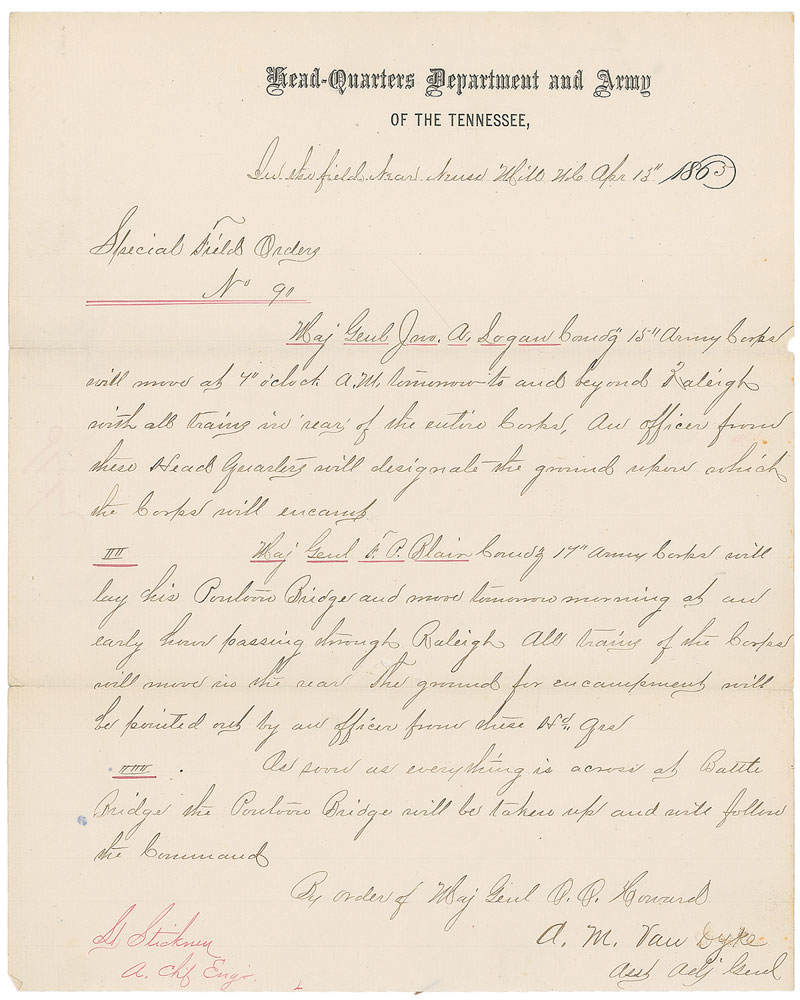 Head-Quarters Department and Army
OF THE TENNESSEE,
In the field Near Neuse Mill N.C. Apr 13" 1865
Special Field Orders
No 90
Maj Genl Jno. A. Logan Comdg 15" Army Corps
will move at 4" oclock A.M. tomorrow to and beyond Raleigh
with all trains in rear of the entire Corps, An officer from
these Head Quarters will designate the ground upon which
the Corps will encamp
II Maj Genl F. P. Blair Comdg 17" Army Corps will
lay his Pontoon Bridge and move tomorrow morning at an
early hour passing through Raleigh All trains of the Corps
will move in the rear The ground for encampment will
be pointed out by an officer from these Hd Qrs
III. As soon as everything is across at Battle
Bridge the Pontoon Bridge will be taken up and will follow
the Command
By order of Maj Genl O. O. Howard
A. M. Van Dyke
Asst Adj Genl
Lt Stickney
A. Chf Engr.